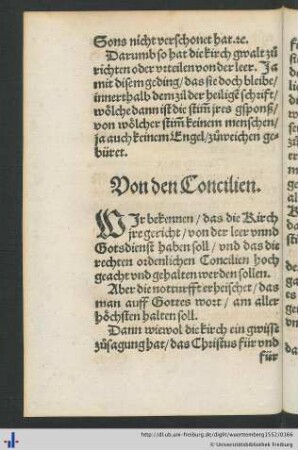 Sons nicht verschonet hat. ꝛc.
Darumb so hat die kirch gwalt zů
richten oder vrteilen von der leer. Ja
mit disem geding / das sie doch bleibe /
innerthalb dem zil der heiligē schrift /
wölche dann ist die stiṁ jres gsponß /
von wölcher stiṁ keinem menschen /
ja auch keinem Engel / zůweichen ge-
büret.
Von den Concilien.
WIr bekennen / das die Kirch
jre gericht / von der leer vnnd
Gotsdienst haben soll / vnd das die
rechten ordenlichen Concilien hoch
geacht vnd gehalten werden sollen.
Aber die notturfft erheischet / das
man auff Gottes wort / am aller
höchsten halten soll.
Dann wiewol die kirch ein gwisse
zůsagung hat / das Christus für vnd
für
http://dl.ub.uni-freiburg.de/diglit/wuerttemberg1552/0366
© Universitätsbibliothek Freiburg